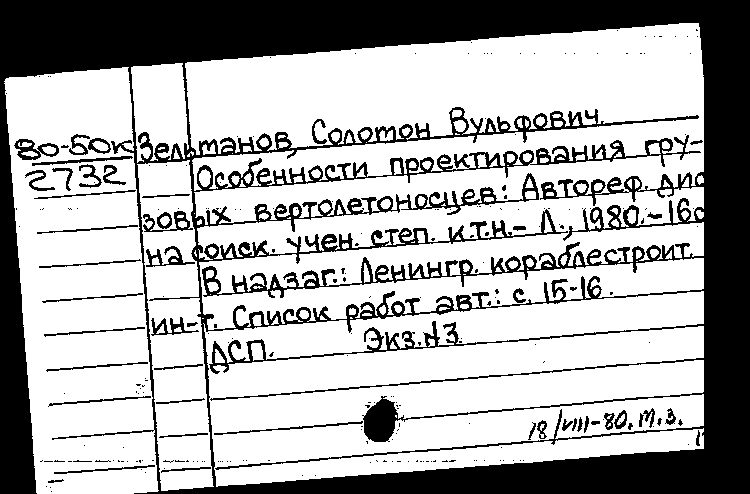 80-50к Зельманов, Соломон Вульфович.
2732 Особенности проектирования гру-
зовых вертолетоносцев: Автореф. дис
на соиск. учен. степ. к.т.н.- Л., 1980.-16с
В надзаг.: Ленингр. кораблестроит.
ин-т. Список работ авт.: с. 15-16.
ДСП. Экз.N3
18/VIII-80. м.з.